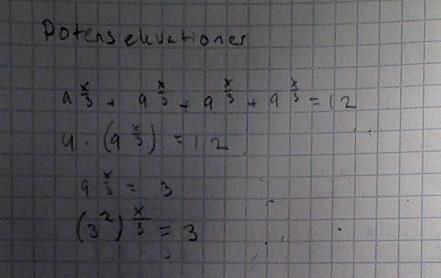 Potens ekvationer
9^(x/3) + 9^(x/3) + 9^(x/3) + 9^(x/3) = 12
4 · (9^(x/3)) = 12
9^(x/3) = 3
(3^2)^(x/3) = 3